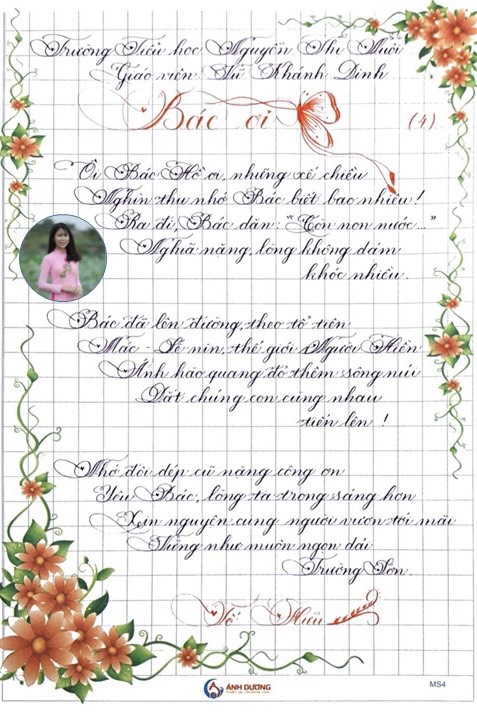 Trường Tiểu học Nguyễn Thị Nuôi
Giáo viên Từ Khánh Dinh
Bác ơi (4)
Ôi Bác Hồ ơi, những xế chiều
Nghìn thu nhớ Bác biết bao nhiêu!
Ra đi, Bác dặn: "Còn non nước..."
Nghĩa nặng, lòng không dám
khóc nhiều.
Bác đã lên đường, theo tổ tiên
Mác - Lê nin, thế giới Người Hiền
Ánh hào quang đỏ thêm sông núi
Dắt chúng con cùng nhau
tiến lên !
Nhớ đôi dép cũ nặng công ơn
Yêu Bác, lòng ta trong sáng hơn
Xin nguyện cùng người vươn tới mãi
Vững như muôn ngọn dải
Trường Sơn.
Tố Hữu
ÁNH DƯƠNG
MS4